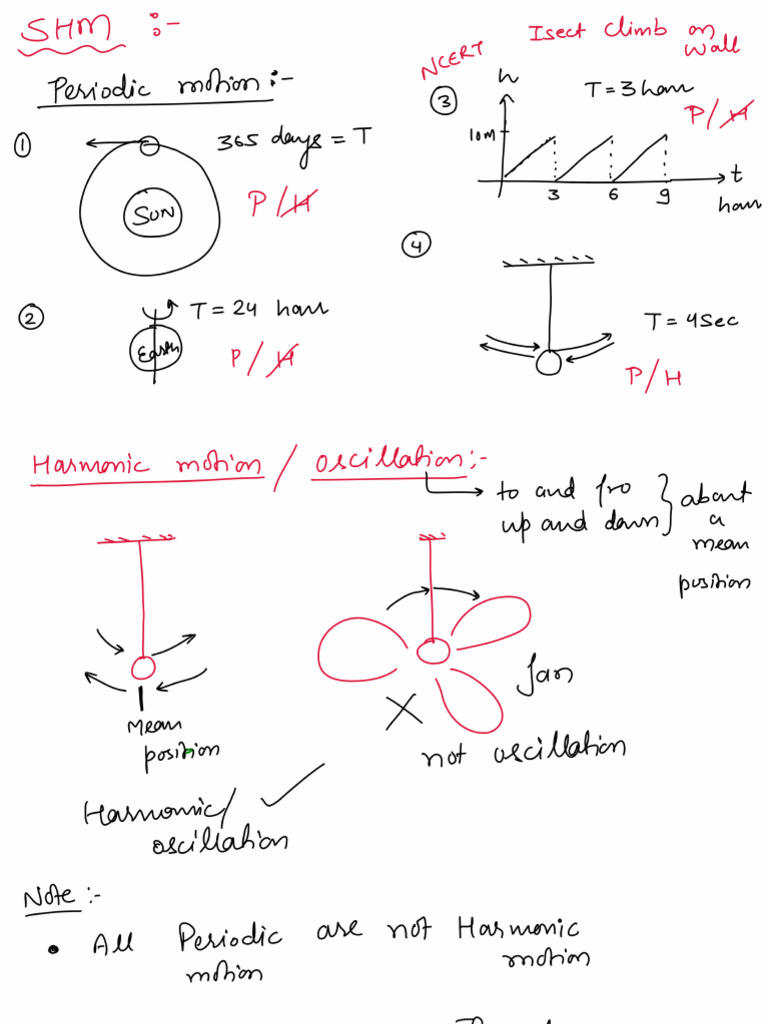 SHM :-
Periodic motion :-
① 365 days = T
SUN
P/H
② T = 24 hour
Earth
P/H
Isect climb on
wall
NCERT
③ h
T = 3 hour
P/H
10m
3 6 9 t
hour
④
T = 4sec
P/H
Harmonic motion / oscillation :-
to and fro
up and down
about
a
mean
position
Mean
position
Harmonic/
oscillation
fan
not oscillation
Note :-
• All Periodic are not Harmonic
motion motion